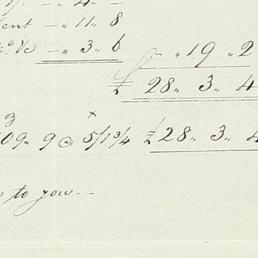 ent – " 11 " 8
– " 3 " 6
" 19 " 2
£ 28 " 3 " 4
3 x
09 " 9 @ 5/1 3/4 £ 28 " 3 " 4
to you. –